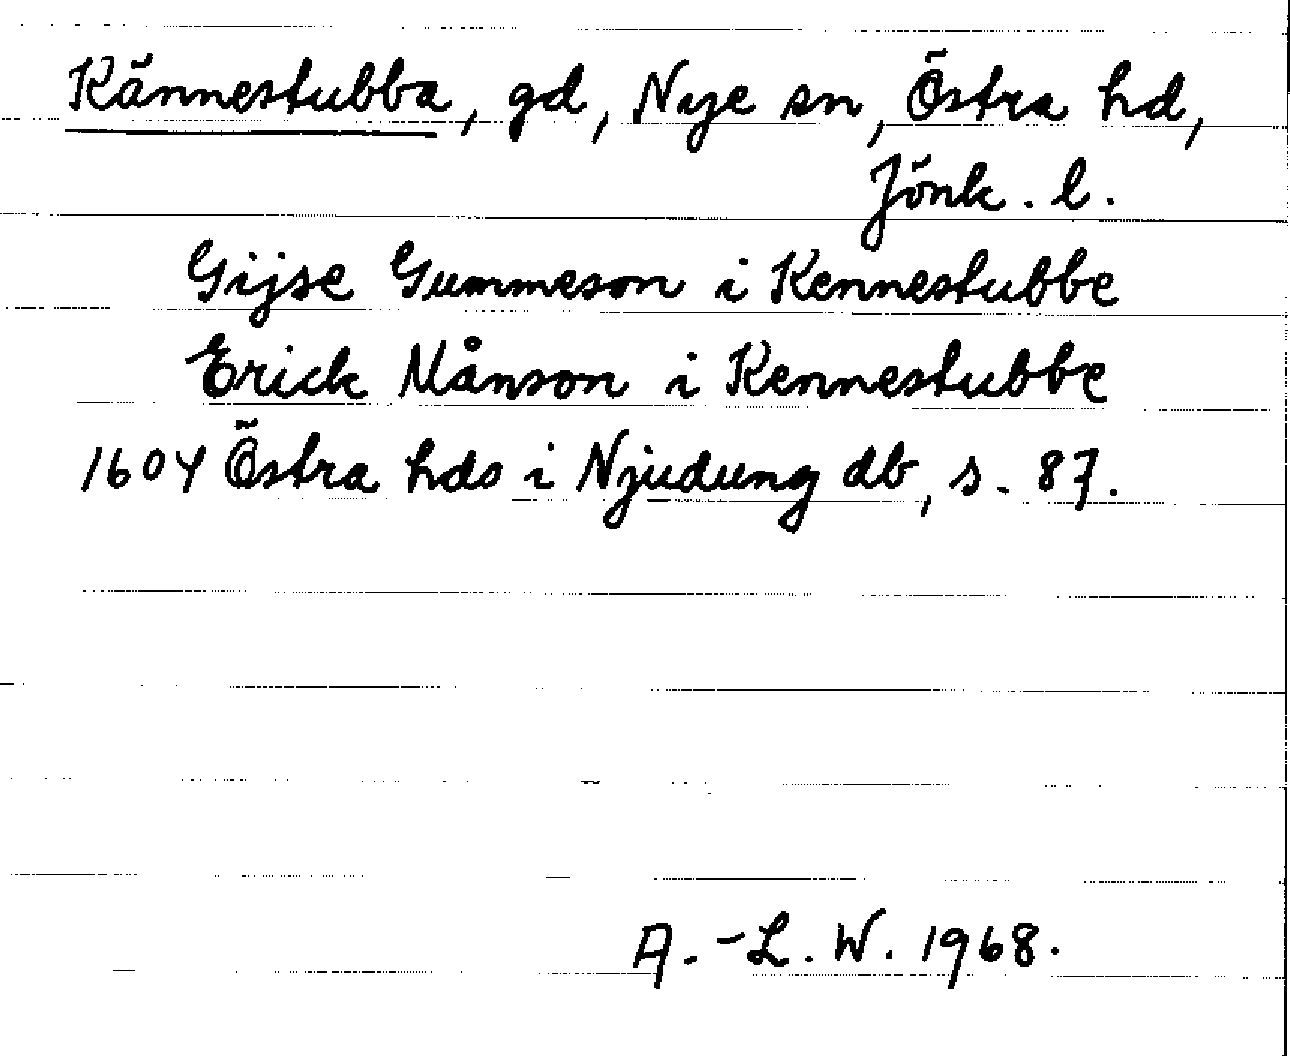 Kännestubba, gd, Nye sn, Östra hd,
Jönk. l.
Gijse Gummeson i Kennestubbe
Erick Månson i Kennestubbe
1604 Östra hds i Njudung db, s. 87.
A.-L. W. 1968.